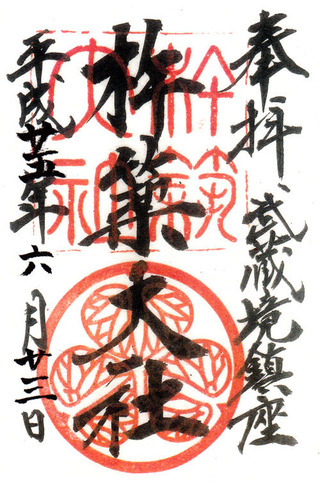 奉拝、武蔵境鎮座
杵築大社
平成廿五年六月廿三日
杵築
大社